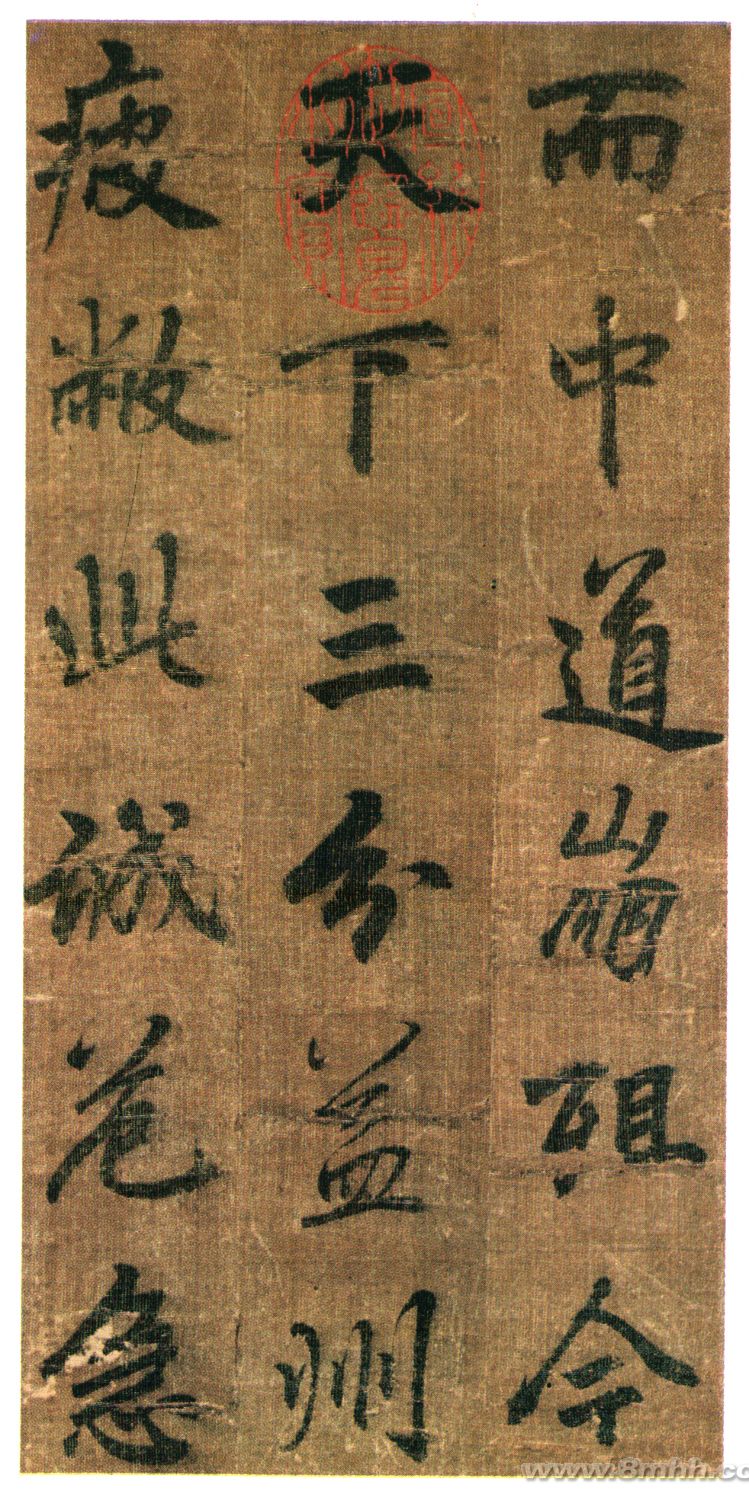 而中道崩殂今
天下三分益州
疲敝此誠危急
www.8mhh.co